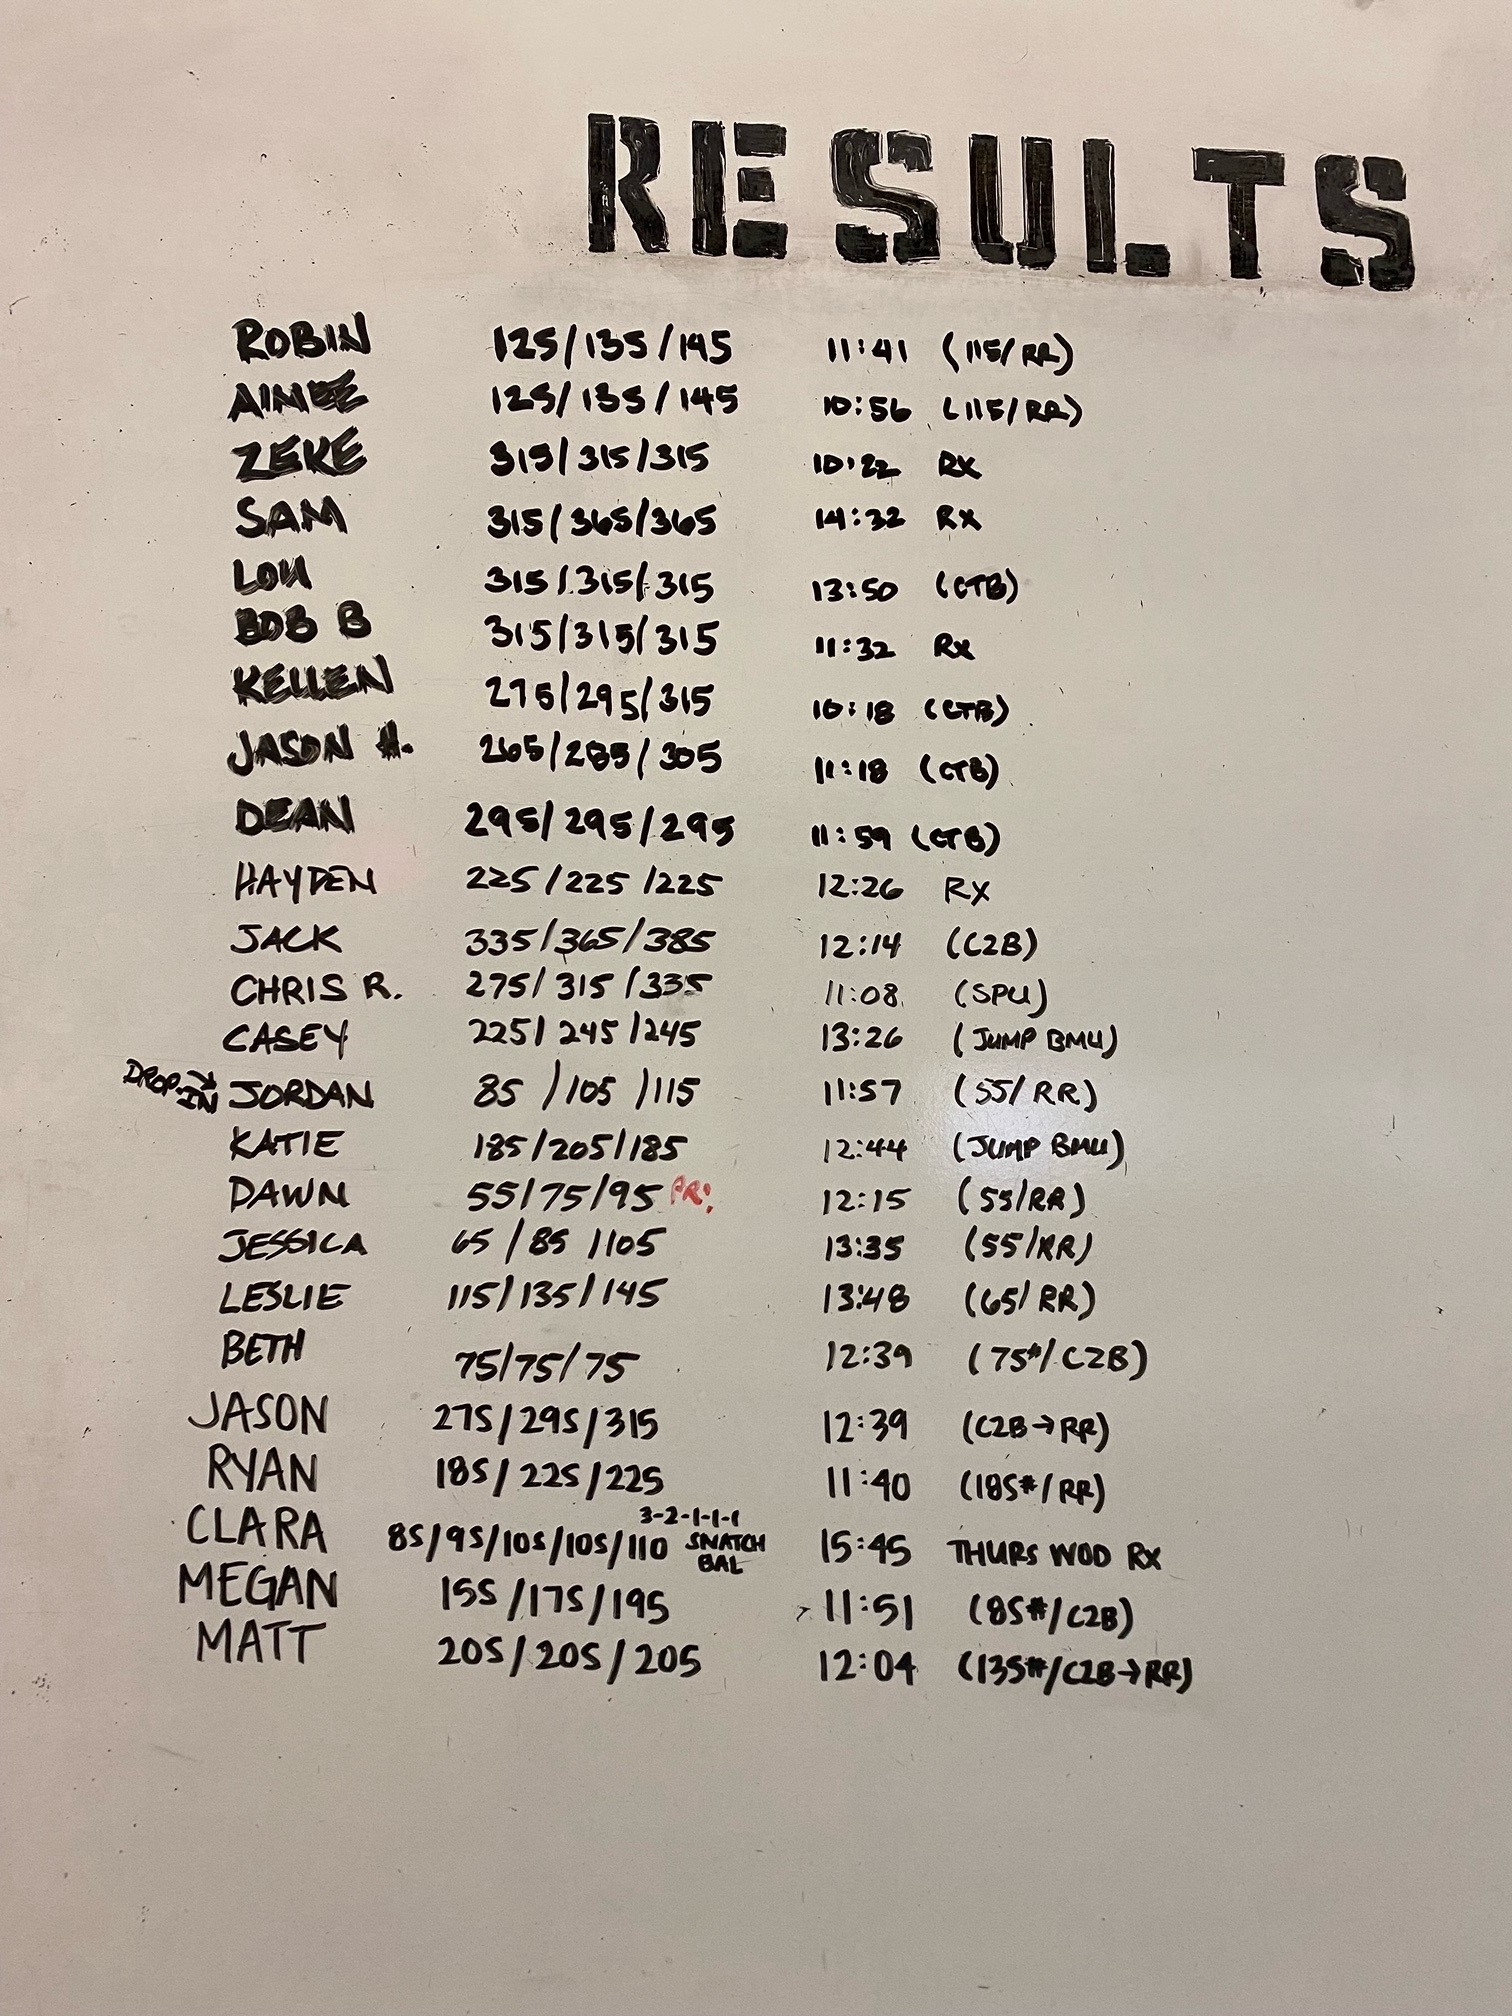 RESULTS
ROBIN 125/135/145 11:41 (115/RR)
AIMEE 125/135/145 10:56 (115/RR)
ZEKE 315/315/315 10:22 RX
SAM 315/365/365 14:32 RX
LOU 315/315/315 13:50 (CTB)
BOB B 315/315/315 11:32 RX
KELLEN 275/295/315 10:18 (CTB)
JASON H. 265/285/305 11:18 (CTB)
DEAN 295/295/295 11:59 (CTB)
HAYDEN 225/225/225 12:26 RX
JACK 335/365/385 12:14 (C2B)
CHRIS R. 275/315/335 11:08 (SPU)
CASEY 225/245/245 13:26 (JUMP BMU)
DROP-IN JORDAN 85/105/115 11:57 (55/RR)
KATIE 185/205/185 12:44 (JUMP BMU)
DAWN 55/75/95 PR! 12:15 (55/RR)
JESSICA 65/85/105 13:35 (55/RR)
LESLIE 115/135/145 13:48 (65/RR)
BETH 75/75/75 12:39 (75#/C2B)
JASON 275/295/315 12:39 (C2B→RR)
RYAN 185/225/225 11:40 (185#/RR)
3-2-1-1-1
CLARA 85/95/105/105/110 SNATCH BAL 15:45 THURS WOD RX
MEGAN 155/175/195 11:51 (85#/C2B)
MATT 205/205/205 12:04 (135#/C2B→RR)